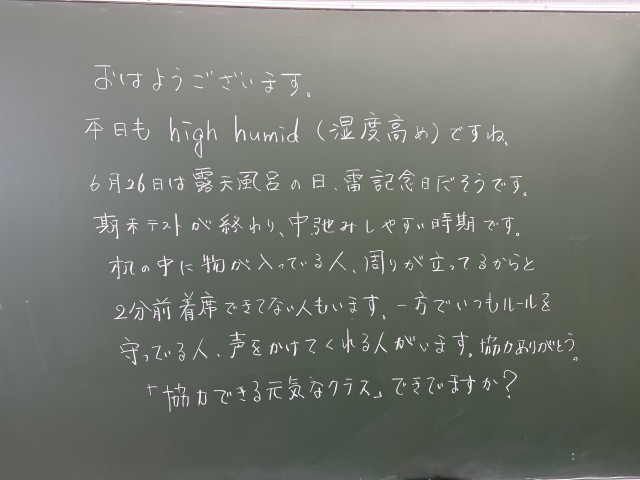 おはようございます。
本日も high humid (湿度高め)ですね。
6月26日は露天風呂の日、雷記念日だそうです。
期末テストが終わり、中弛みしやすい時期です。
机の中に物が入っている人、周りが立ってるからと
2分前着席できてない人もいます。一方でいつもルールを
守っている人、声をかけてくれる人がいます。協力ありがとう。
「協力できる元気なクラス」できてますか?